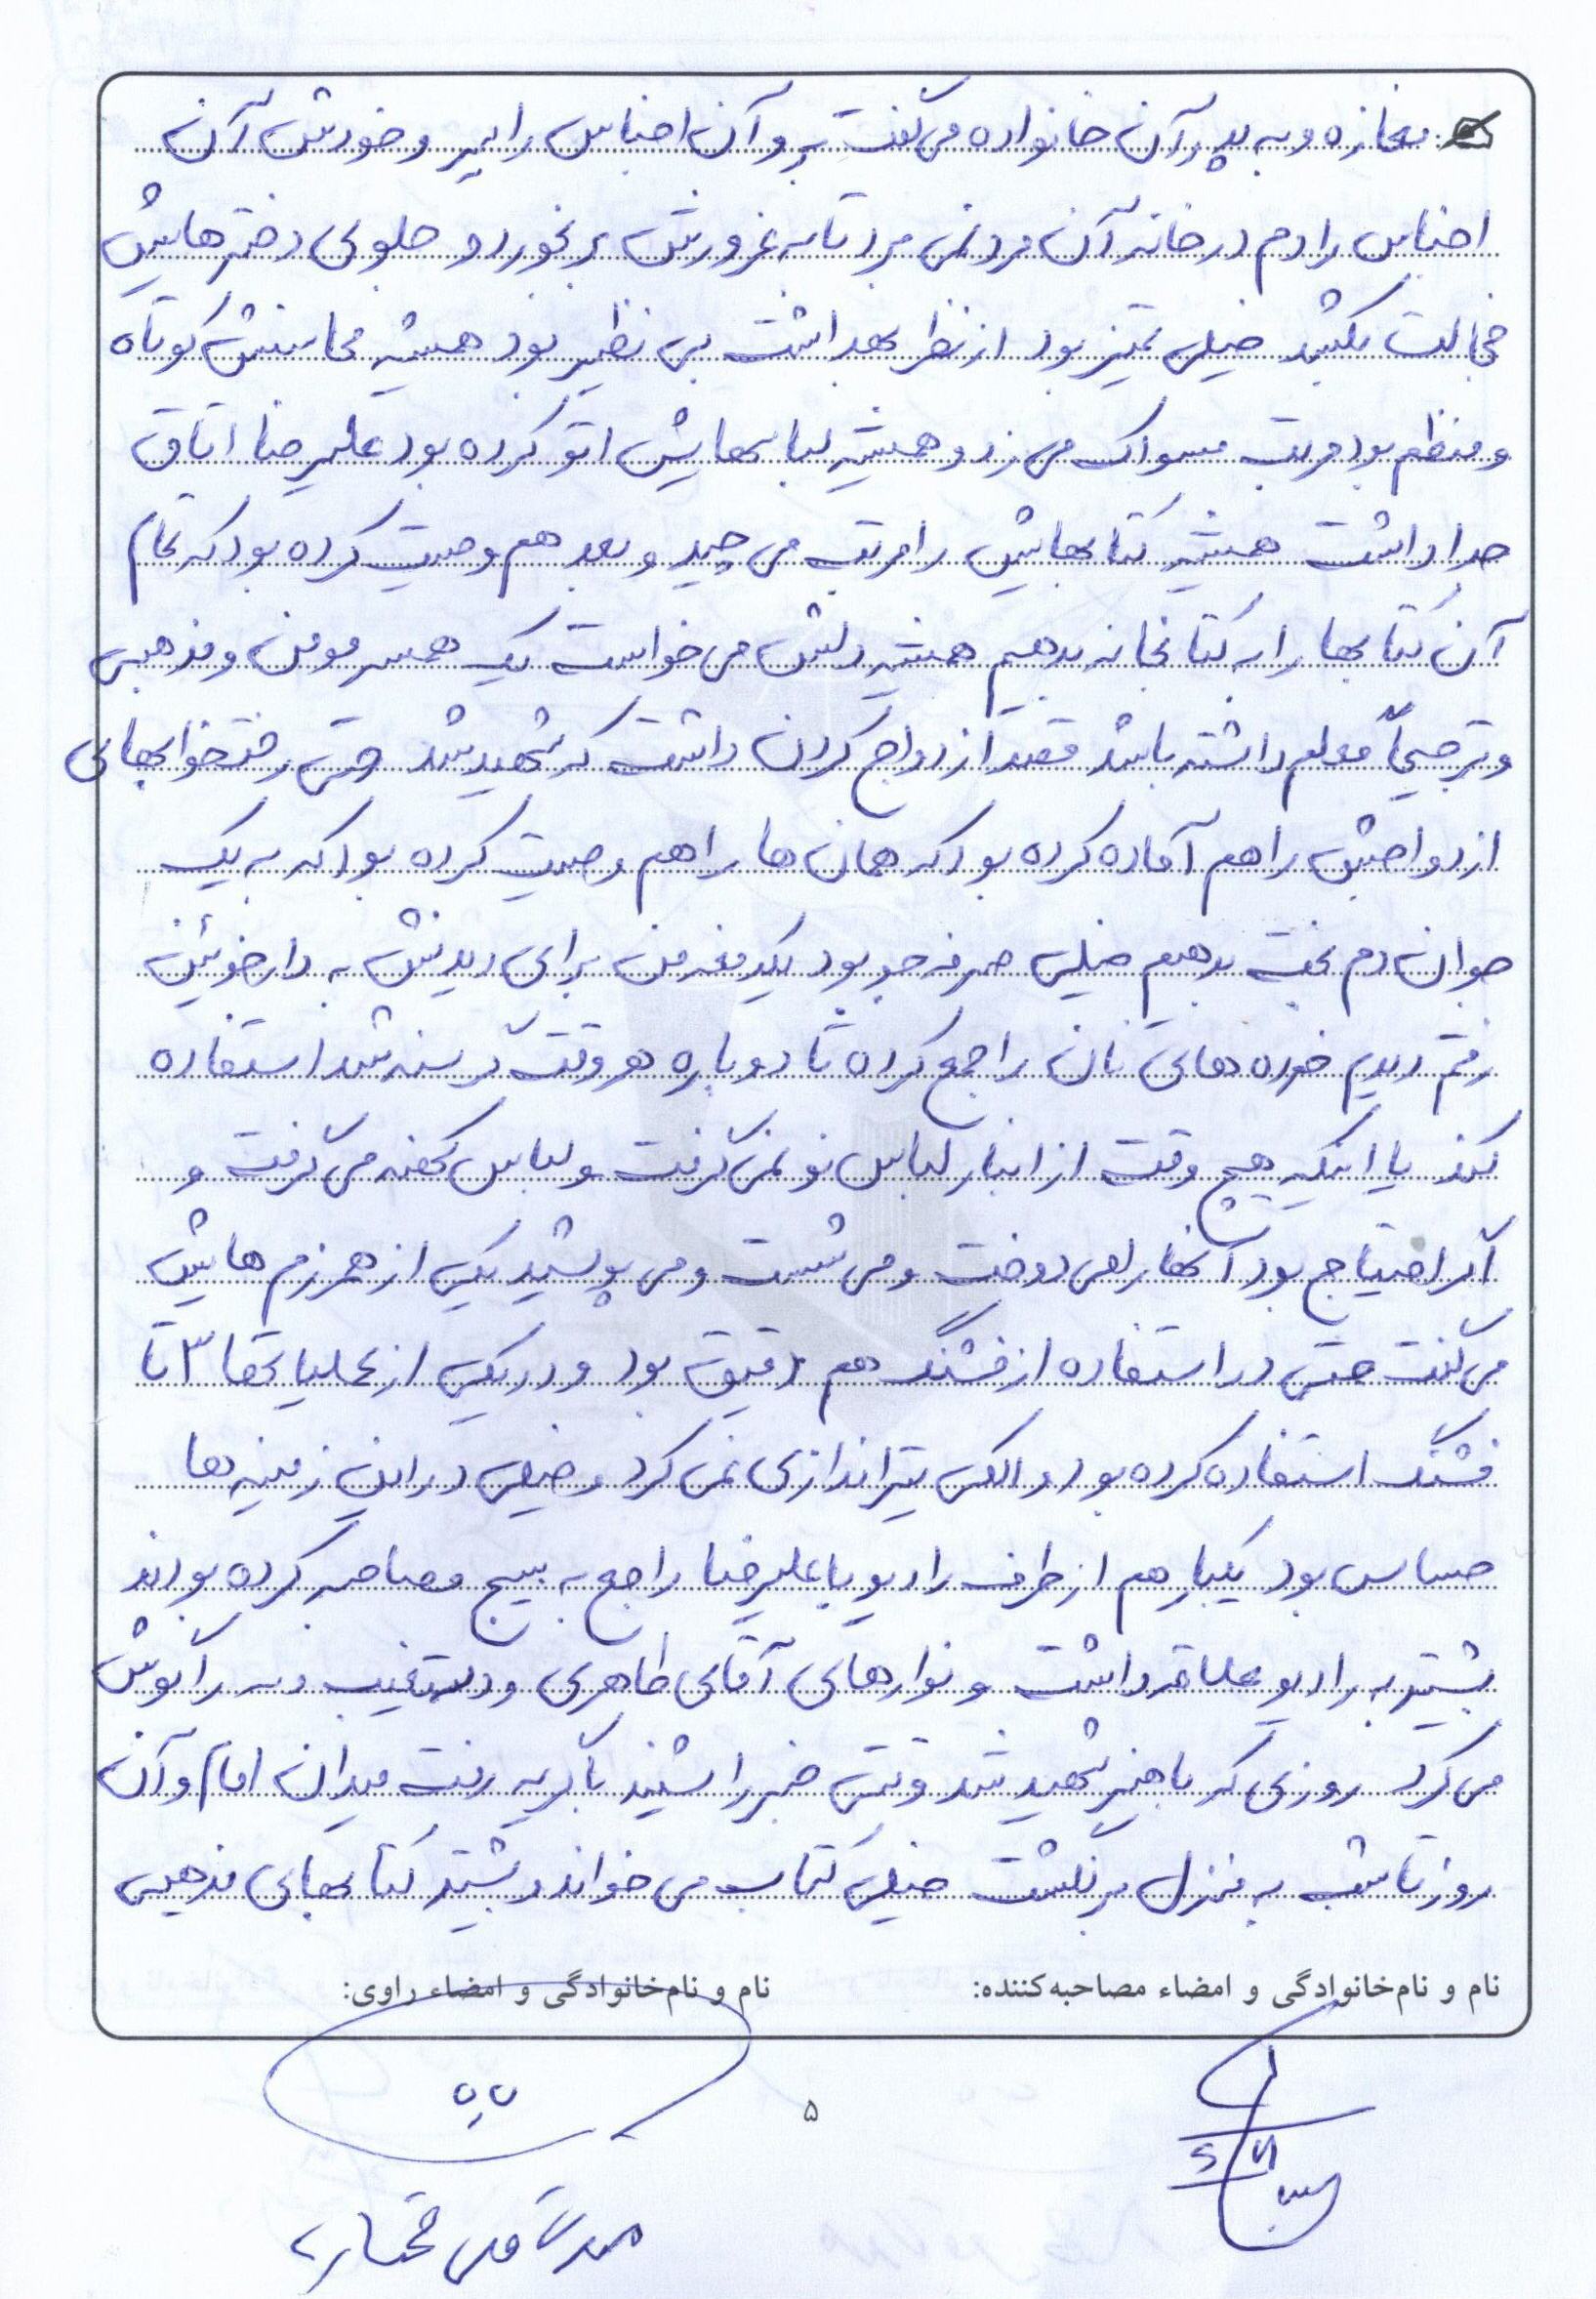 مغازه و به پدر آن خانواده می گفت برو آن اجناس را ببر و خودش آن
اجناس را دم در خانه آن مرد نمی برد تا به غرورش بر نخورد و جلوی دخترهایش
خجالت نکشد خیلی تمیز بود از نظر بهداشت بی نظیر بود همیشه محاسنش کوتاه
و منظم بود مرتب مسواک می زد و همیشه لباسهایش اتو کرده بود علیرضا اتاق
جدا داشت همیشه کتابهایش را مرتب می چید و بعد هم وصیت کرده بود که تمام
آن کتابها را به کتابخانه بدهیم همیشه دلش می خواست یک همسر مومن و مذهبی
و ترجیحاً معلم داشته باشد قصد ازدواج کردن داشت که شهید شد حتی رختخوابهای
ازدواجش را هم آماده کرده بود که همان ها را هم وصیت کرده بود که به یک
جوان دم بخت بدهیم خیلی صرفه جو بود یکدفعه من برای دیدنش به دارخوئین
رفتم دیدم خورده های نان را جمع کرده تا دوباره هر وقت گرسنه شد استفاده
کند یا اینکه هیچ وقت از انبار لباس نو نمی گرفت و لباس کهنه می گرفت و
اگر احتیاج بود آنها را می دوخت و می شست و می پوشید یکی از همرزم هایش
می گفت حتی در استفاده از فشنگ هم دقیق بود و در یکی از عملیاتها ۳ تا
فشنگ استفاده کرده بود و الکی تیراندازی نمی کرد و خیلی در این زمینه ها
حساس بود یکبار هم از طرف رادیو با علیرضا راجع به بسیج مصاحبه کرده بودند
بیشتر به رادیو علاقه داشت و نوارهای آقای طاهری و دستغیب را گوش
می کرد روزی که باهنر شهید شد وقتی خبر را شنید با گریه رفت میدان امام و آن
روز تا شب به منزل برنگشت خیلی کتاب می خواند و بیشتر کتابهای مذهبی
نام و نام‌خانوادگی و امضاء مصاحبه‌کننده:
نام و نام‌خانوادگی و امضاء راوی:
۵